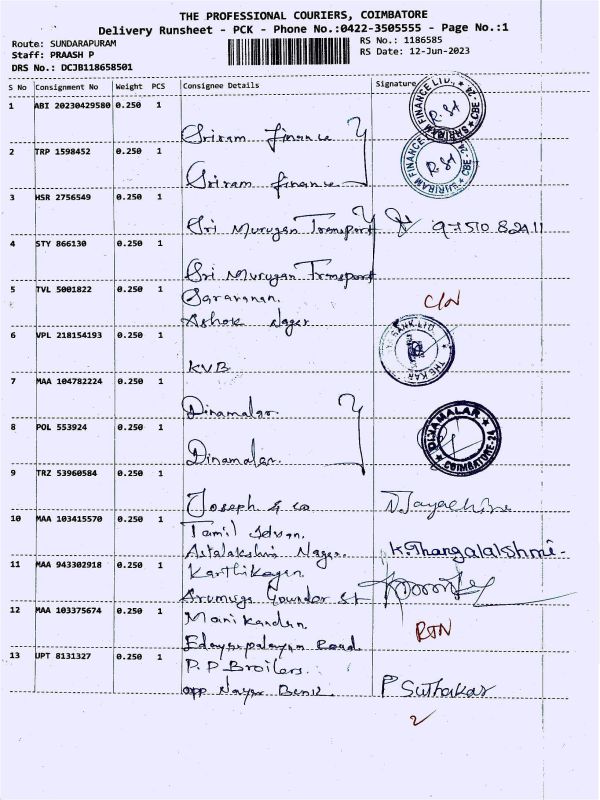 THE PROFESSIONAL COURIERS, COIMBATORE
Delivery Runsheet - PCK - Phone No.:0422-3505555 - Page No.:1
Route: SUNDARAPURAM
Staff: PRAASH P
DRS No.: DCJB118658501
RS No.: 1186585
RS Date: 12-Jun-2023
S No Consignment No Weight PCS Consignee Details Signature
1 ABI 20230429580 0.250 1
Sriram finance
SHRIRAM FINANCE LTD., CBE-24
2 TRP 1598452 0.250 1
Sriram finance
SHRIRAM FINANCE CBE-24
3 HSR 2756549 0.250 1
Sri Murugan Transport
4 STY 866130 0.250 1
Sri Murugan Transport
5 TVL 5001822 0.250 1
Saravanan.
Ashok Nagar
C/N
6 VPL 218154193 0.250 1
KVB
BANK LTD. THE KAR
7 MAA 104782224 0.250 1
Dinamalar.
8 POL 553924 0.250 1
Dinamalar.
DINAMALAR COIMBATORE-24
9 TRZ 53960584 0.250 1
Joseph & co
10 MAA 103415570 0.250 1
Tamil
Astalakshmi Nagar.
K.Thangalakshmi-
11 MAA 943302918 0.250 1
Karthikeyan
Arumuga Gounder St
12 MAA 103375674 0.250 1
Manikandan
Edayarpalayam Road.
RTN
13 UPT 8131327 0.250 1
P.P Broilers.
opp Nagar Bank
P Suthakar
2